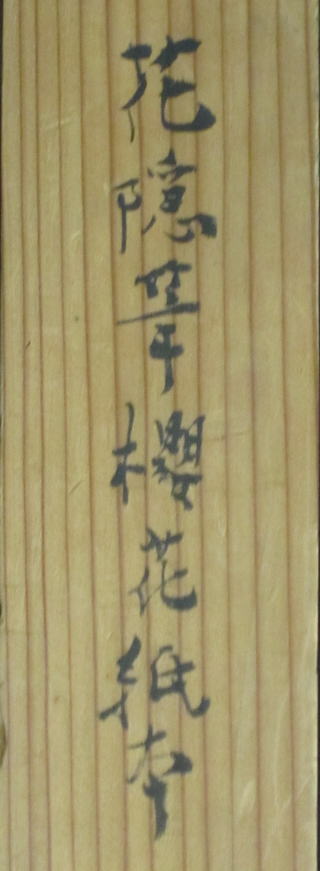 花隠筆櫻花紙本